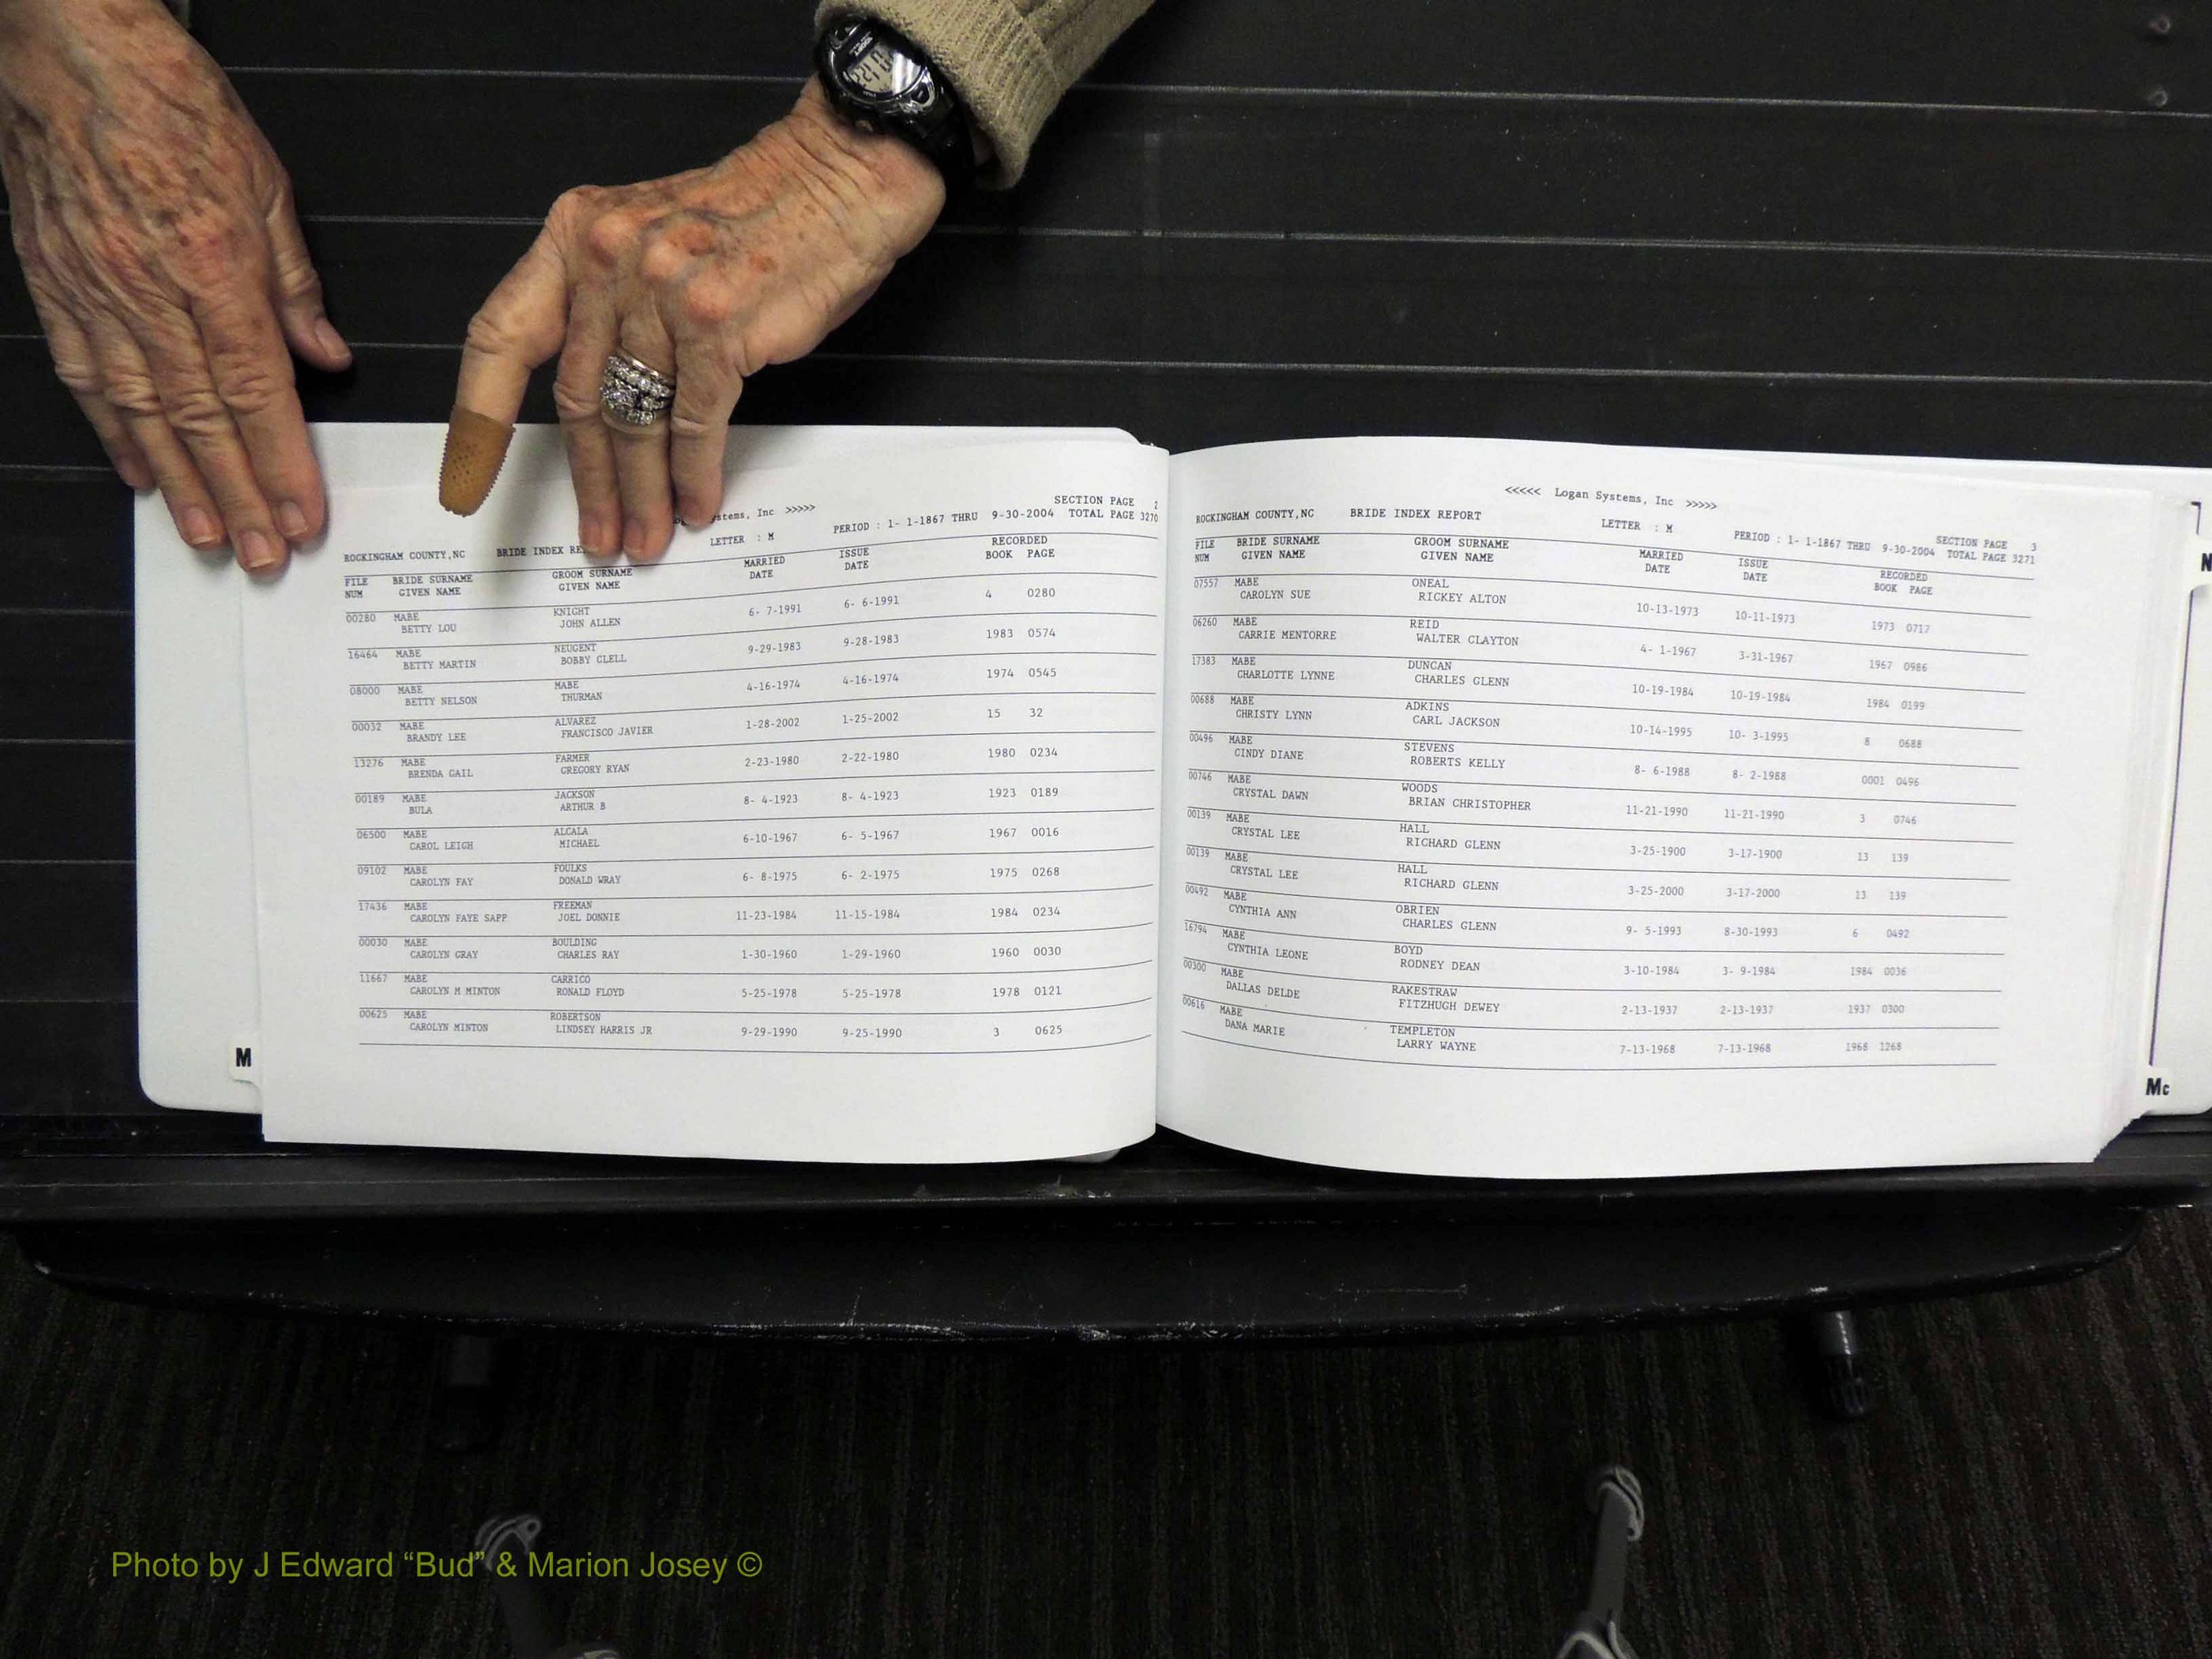 stems, Inc >>>>>
SECTION PAGE 2
ROCKINGHAM COUNTY,NC BRIDE INDEX RE LETTER : M PERIOD : 1- 1-1867 THRU 9-30-2004 TOTAL PAGE 3270
FILE BRIDE SURNAME GROOM SURNAME MARRIED ISSUE RECORDED
NUM GIVEN NAME GIVEN NAME DATE DATE BOOK PAGE
00280 MABE KNIGHT 6- 7-1991 6- 6-1991 4 0280
BETTY LOU JOHN ALLEN
16464 MABE NEUGENT 9-29-1983 9-28-1983 1983 0574
BETTY MARTIN BOBBY CLELL
08000 MABE MABE 4-16-1974 4-16-1974 1974 0545
BETTY NELSON THURMAN
00032 MABE ALVAREZ 1-28-2002 1-25-2002 15 32
BRANDY LEE FRANCISCO JAVIER
13276 MABE FARMER 2-23-1980 2-22-1980 1980 0234
BRENDA GAIL GREGORY RYAN
00189 MABE JACKSON 8- 4-1923 8- 4-1923 1923 0189
BULA ARTHUR B
06500 MABE ALCALA 6-10-1967 6- 5-1967 1967 0016
CAROL LEIGH MICHAEL
09102 MABE FOULKS 6- 8-1975 6- 2-1975 1975 0268
CAROLYN FAY DONALD WRAY
17436 MABE FREEMAN 11-23-1984 11-15-1984 1984 0234
CAROLYN FAYE SAPP JOEL DONNIE
00030 MABE BOULDING 1-30-1960 1-29-1960 1960 0030
CAROLYN GRAY CHARLES RAY
11667 MABE CARRICO 5-25-1978 5-25-1978 1978 0121
CAROLYN M MINTON RONALD FLOYD
00625 MABE ROBERTSON 9-29-1990 9-25-1990 3 0625
CAROLYN MINTON LINDSEY HARRIS JR
M
<<<<< Logan Systems, Inc >>>>>
SECTION PAGE 3
ROCKINGHAM COUNTY,NC BRIDE INDEX REPORT LETTER : M PERIOD : 1- 1-1867 THRU 9-30-2004 TOTAL PAGE 3271
FILE BRIDE SURNAME GROOM SURNAME MARRIED ISSUE RECORDED
NUM GIVEN NAME GIVEN NAME DATE DATE BOOK PAGE
07557 MABE ONEAL 10-13-1973 10-11-1973 1973 0717
CAROLYN SUE RICKEY ALTON
06260 MABE REID 4- 1-1967 3-31-1967 1967 0986
CARRIE MENTORRE WALTER CLAYTON
17383 MABE DUNCAN 10-19-1984 10-19-1984 1984 0199
CHARLOTTE LYNNE CHARLES GLENN
00688 MABE ADKINS 10-14-1995 10- 3-1995 8 0688
CHRISTY LYNN CARL JACKSON
00496 MABE STEVENS 8- 6-1988 8- 2-1988 0001 0496
CINDY DIANE ROBERTS KELLY
00746 MABE WOODS 11-21-1990 11-21-1990 3 0746
CRYSTAL DAWN BRIAN CHRISTOPHER
00139 MABE HALL 3-25-1900 3-17-1900 13 139
CRYSTAL LEE RICHARD GLENN
00139 MABE HALL 3-25-2000 3-17-2000 13 139
CRYSTAL LEE RICHARD GLENN
00492 MABE OBRIEN 9- 5-1993 8-30-1993 6 0492
CYNTHIA ANN CHARLES GLENN
16794 MABE BOYD 3-10-1984 3- 9-1984 1984 0036
CYNTHIA LEONE RODNEY DEAN
00300 MABE RAKESTRAW 2-13-1937 2-13-1937 1937 0300
DALLAS DELDE FITZHUGH DEWEY
00616 MABE TEMPLETON 7-13-1968 7-13-1968 1968 1268
DANA MARIE LARRY WAYNE
Mc
Photo by J Edward “Bud” & Marion Josey ©